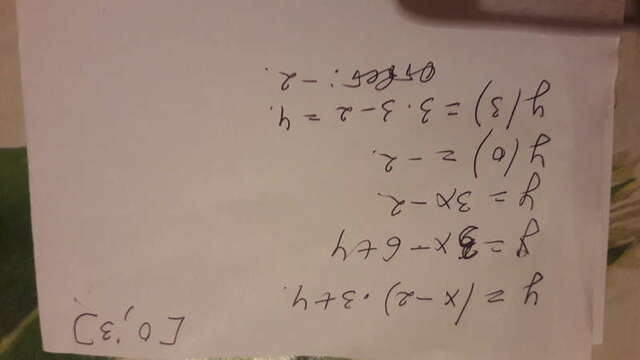 [0;3]
y = (x-2)·3+4.
y = 3x-6+4
y = 3x-2.
y(0) = -2.
y(3) = 3·3-2 = 4.
Ответ: -2.